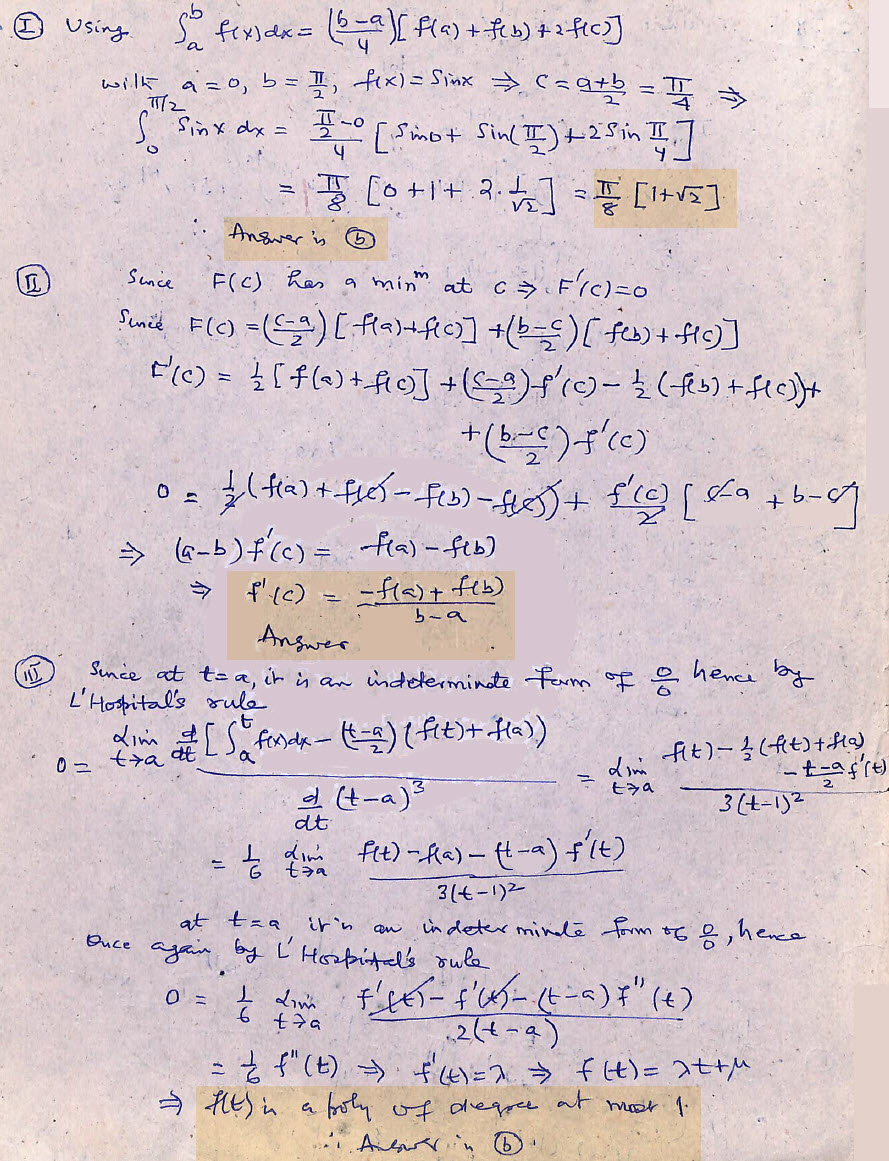 I Using ∫_a^b f(x)dx = ((b-a)/4)[f(a)+f(b)+2f(c)]
with a=0, b=π/2, f(x)=Sinx ⇒ C=(a+b)/2=π/4 ⇒
∫_0^{π/2} Sinx dx = ((π/2-0)/4)[Sin0+Sin(π/2)+2Sin π/4]
= π/8 [0+1+2·1/√2] = π/8 [1+√2]
∴ Answer is (b)
II Since F(c) has a min^m at c ⇒ F'(c)=0
Since F(c)=((c-a)/2)[f(a)+f(c)]+((b-c)/2)[f(b)+f(c)]
F'(c) = 1/2[f(a)+f(c)]+((c-a)/2)f'(c)-1/2(f(b)+f(c))+
+((b-c)/2)f'(c)
0 = 1/2(f(a)+f(c)-f(b)-f(c))+ f'(c)/2 [c-a+b-c]
⇒ (a-b)f'(c) = f(a)-f(b)
⇒ f'(c) = (-f(a)+f(b))/(b-a)
Answer
III Since at t=a, it is an indeterminate form of 0/0 hence by
L'Hospital's rule
0 = lim_{t→a} d/dt[∫_a^t f(x)dx-((t-a)/2)(f(t)+f(a))) / d/dt (t-a)^3 = lim_{t→a} (f(t)-1/2(f(t)+f(a)) - (t-a)/2 f'(t)) / 3(t-1)^2
= 1/6 lim_{t→a} (f(t)-f(a)-(t-a)f'(t)) / 3(t-1)^2
at t=a it is an indeterminate form of 0/0, hence
Once again by L'Hospital's rule
0 = 1/6 lim_{t→a} (f'(t)-f'(t)-(t-a)f''(t)) / 2(t-a)
= 1/6 f''(t) ⇒ f'(t)=λ ⇒ f(t)=λt+μ
⇒ f(t) is a poly of degree at most 1.
∴ Answer is (b).